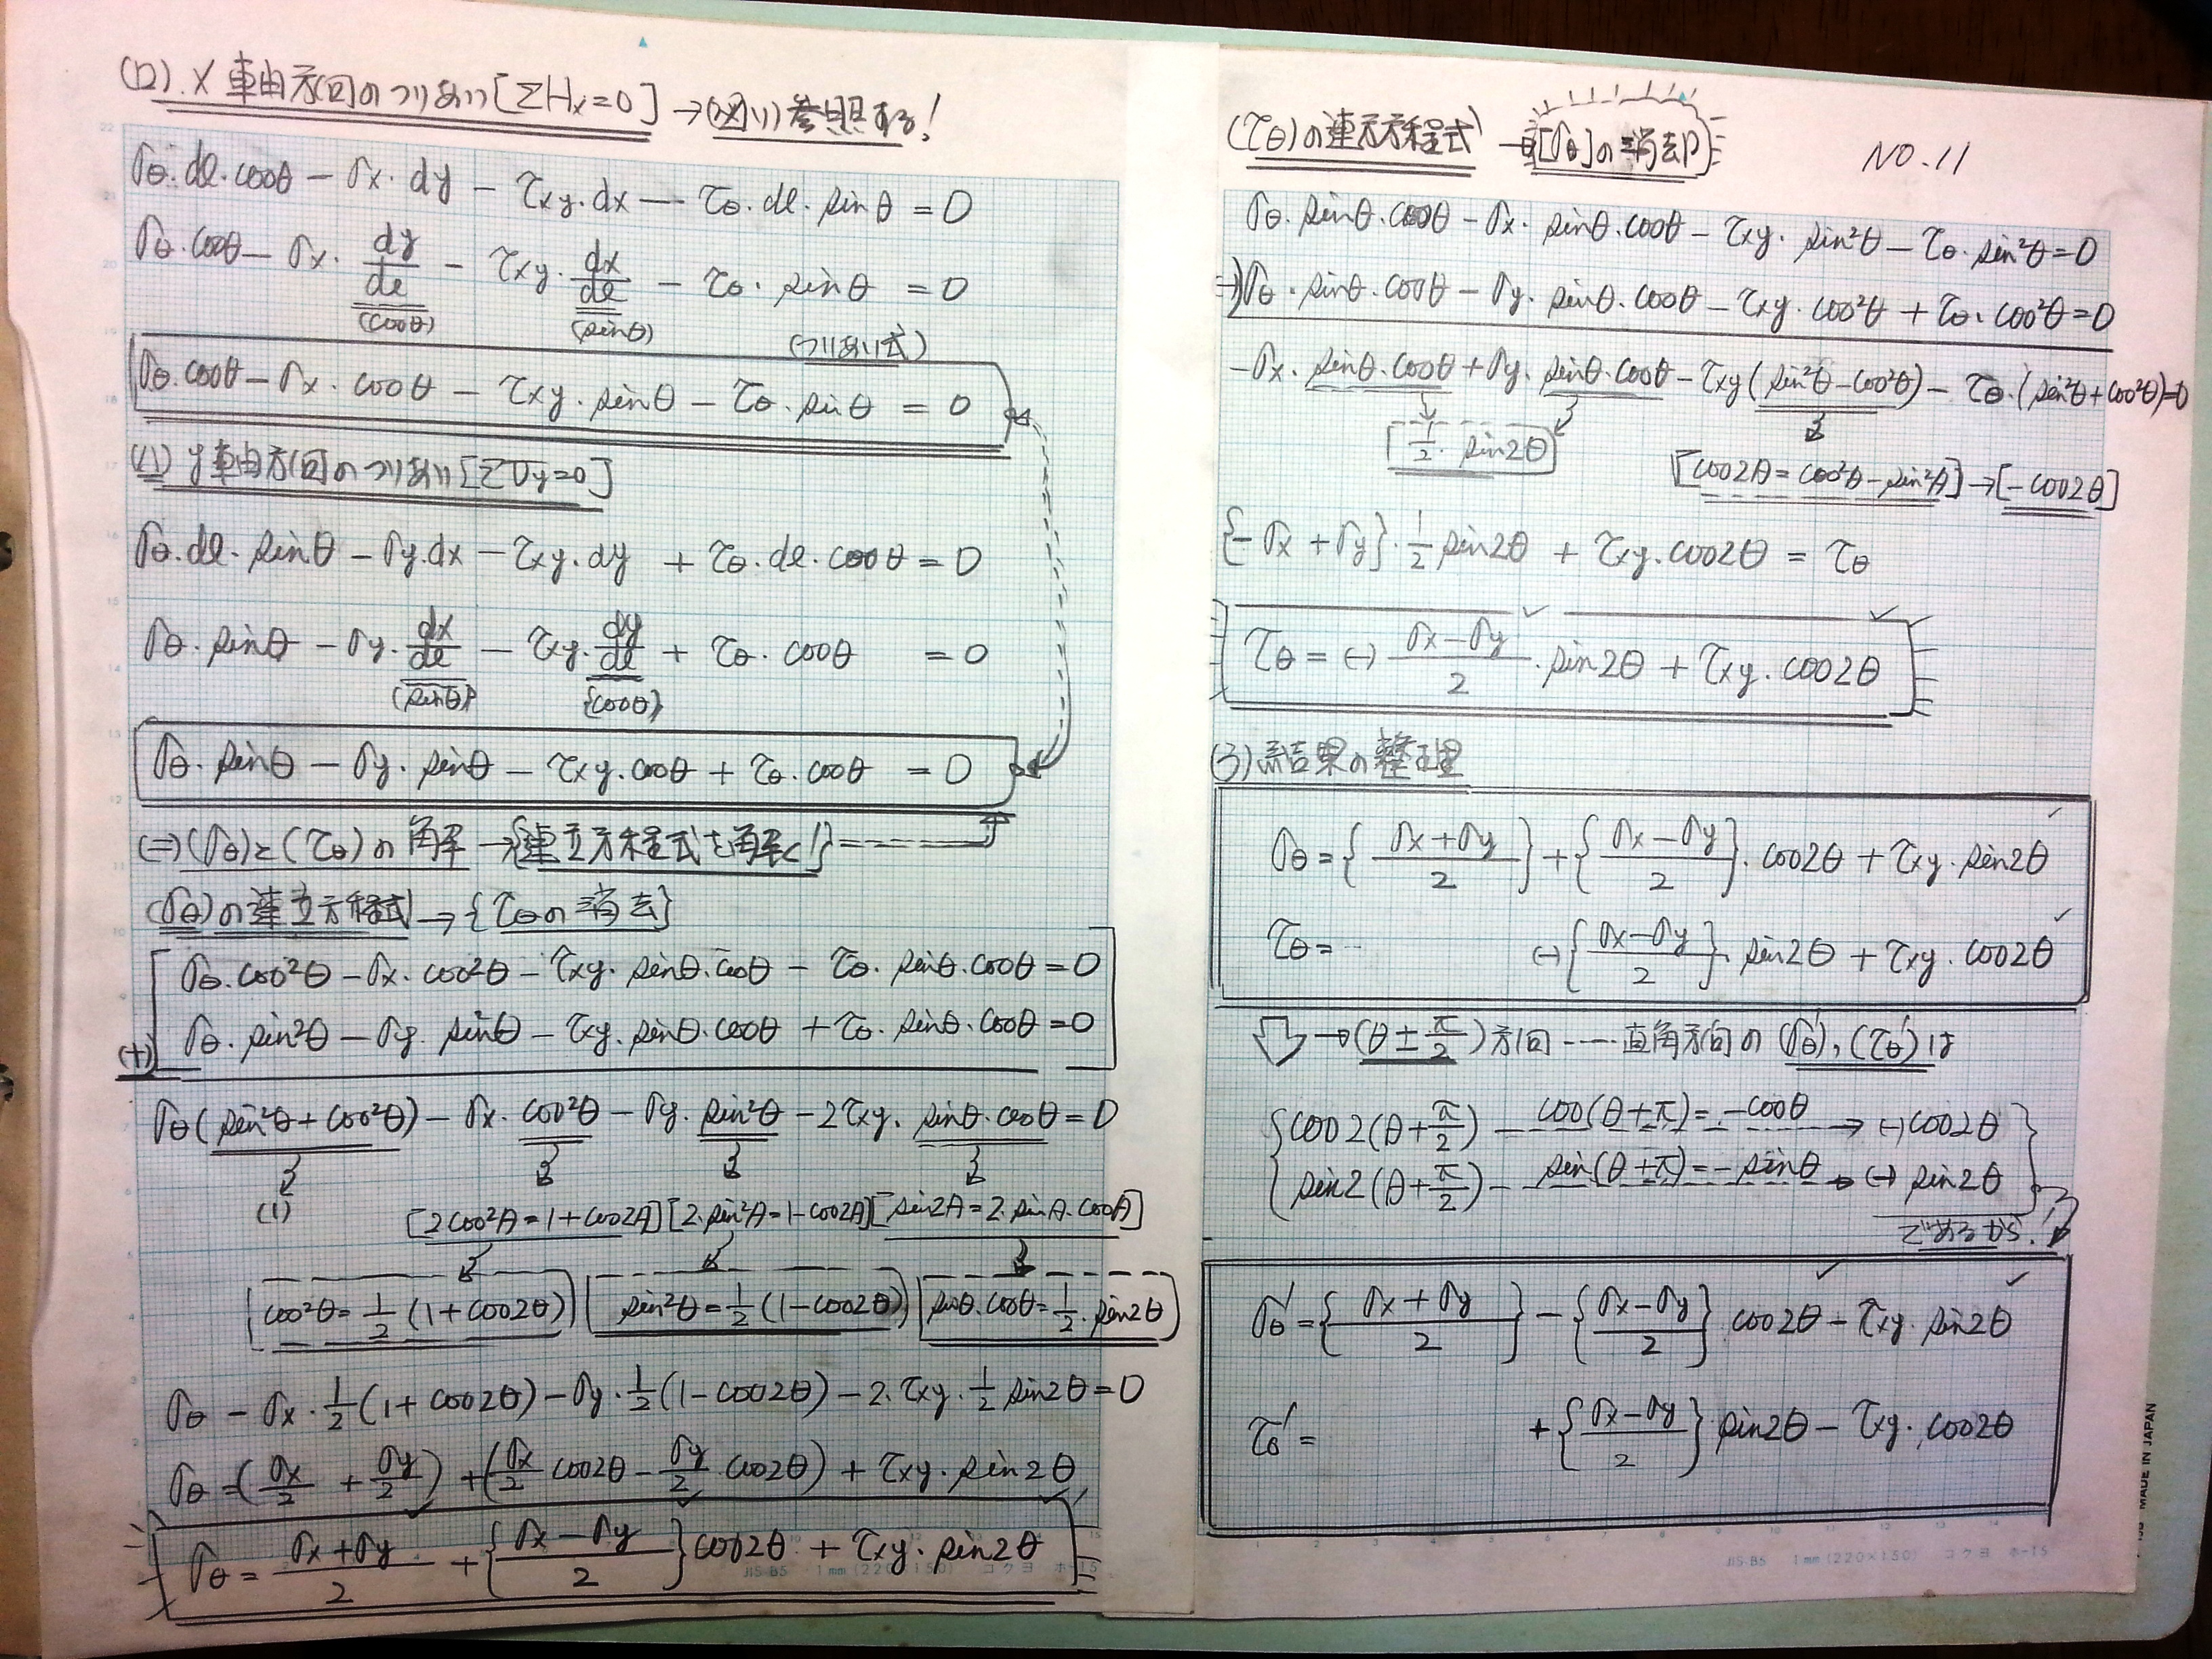 (ロ). X 軸方向のつりあい [ΣHx=0] → (図1) 参照する!
σθ・dl・cosθ − σx・dy − τxy・dx − τθ・dl・sinθ = 0
σθ・cosθ − σx・dy/dl − τxy・dx/dl − τθ・sinθ = 0
(cosθ) (sinθ) (つりあい式)
σθ・cosθ − σx・cosθ − τxy・sinθ − τθ・sinθ = 0
(ハ) y 軸方向のつりあい [ΣVy=0]
σθ・dl・sinθ − σy・dx − τxy・dy + τθ・dl・cosθ = 0
σθ・sinθ − σy・dx/dl − τxy・dy/dl + τθ・cosθ = 0
(sinθ) {cosθ}
σθ・sinθ − σy・sinθ − τxy・cosθ + τθ・cosθ = 0
(ニ) (σθ)と(τθ)の解 → {連立方程式を解く!}
(σθ)の連立方程式 → {τθの消去}
σθ・cos²θ − σx・cos²θ − τxy・sinθ・cosθ − τθ・sinθ・cosθ = 0
(+) σθ・sin²θ − σy・sin²θ − τxy・sinθ・cosθ + τθ・sinθ・cosθ = 0
σθ(sin²θ + cos²θ) − σx・cos²θ − σy・sin²θ − 2τxy・sinθ・cosθ = 0
(1) [2cos²A = 1 + cos2A] [2・sin²A = 1 − cos2A] [sin2A = 2・sinA・cosA]
cos²θ = 1/2 (1 + cos2θ) sin²θ = 1/2 (1 − cos2θ) sinθ・cosθ = 1/2・sin2θ
σθ − σx・1/2 (1 + cos2θ) − σy・1/2 (1 − cos2θ) − 2・τxy・1/2 sin2θ = 0
σθ = (σx/2 + σy/2) + (σx/2 cos2θ − σy/2・cos2θ) + τxy・sin2θ
σθ = σx + σy / 2 + {σx − σy / 2} cos2θ + τxy・sin2θ
JIS-B5 1mm (220×150) コクヨ ホ-15
(τθ)の連立方程式 → [σθ]の消去
NO.11
σθ・sinθ・cosθ − σx・sinθ・cosθ − τxy・sin²θ − τθ・sin²θ = 0
−) σθ・sinθ・cosθ − σy・sinθ・cosθ − τxy・cos²θ + τθ・cos²θ = 0
−σx・sinθ・cosθ + σy・sinθ・cosθ − τxy(sin²θ − cos²θ) − τθ・(sin²θ + cos²θ) = 0
[1/2・sin2θ]
[cos2A = cos²A − sin²A] → [−cos2θ]
{−σx + σy}・1/2 sin2θ + τxy・cos2θ = τθ
τθ = (−) σx − σy / 2・sin2θ + τxy・cos2θ
(3) 結果の整理
σθ = {σx + σy / 2} + {σx − σy / 2}・cos2θ + τxy・sin2θ
τθ = (−){σx − σy / 2}・sin2θ + τxy・cos2θ
→ (θ ± π/2) 方向 …… 直角方向の (σθ'), (τθ') は
cos2(θ + π/2) cos(θ + π) = −cosθ → (−)cos2θ
sin2(θ + π/2) sin(θ + π) = −sinθ → (−) sin2θ
であるから!
σθ' = {σx + σy / 2} − {σx − σy / 2} cos2θ − τxy・sin2θ
τθ' = + {σx − σy / 2} sin2θ − τxy・cos2θ
JIS-B5 1mm (220×150) コクヨ ホ-15
MADE IN JAPAN